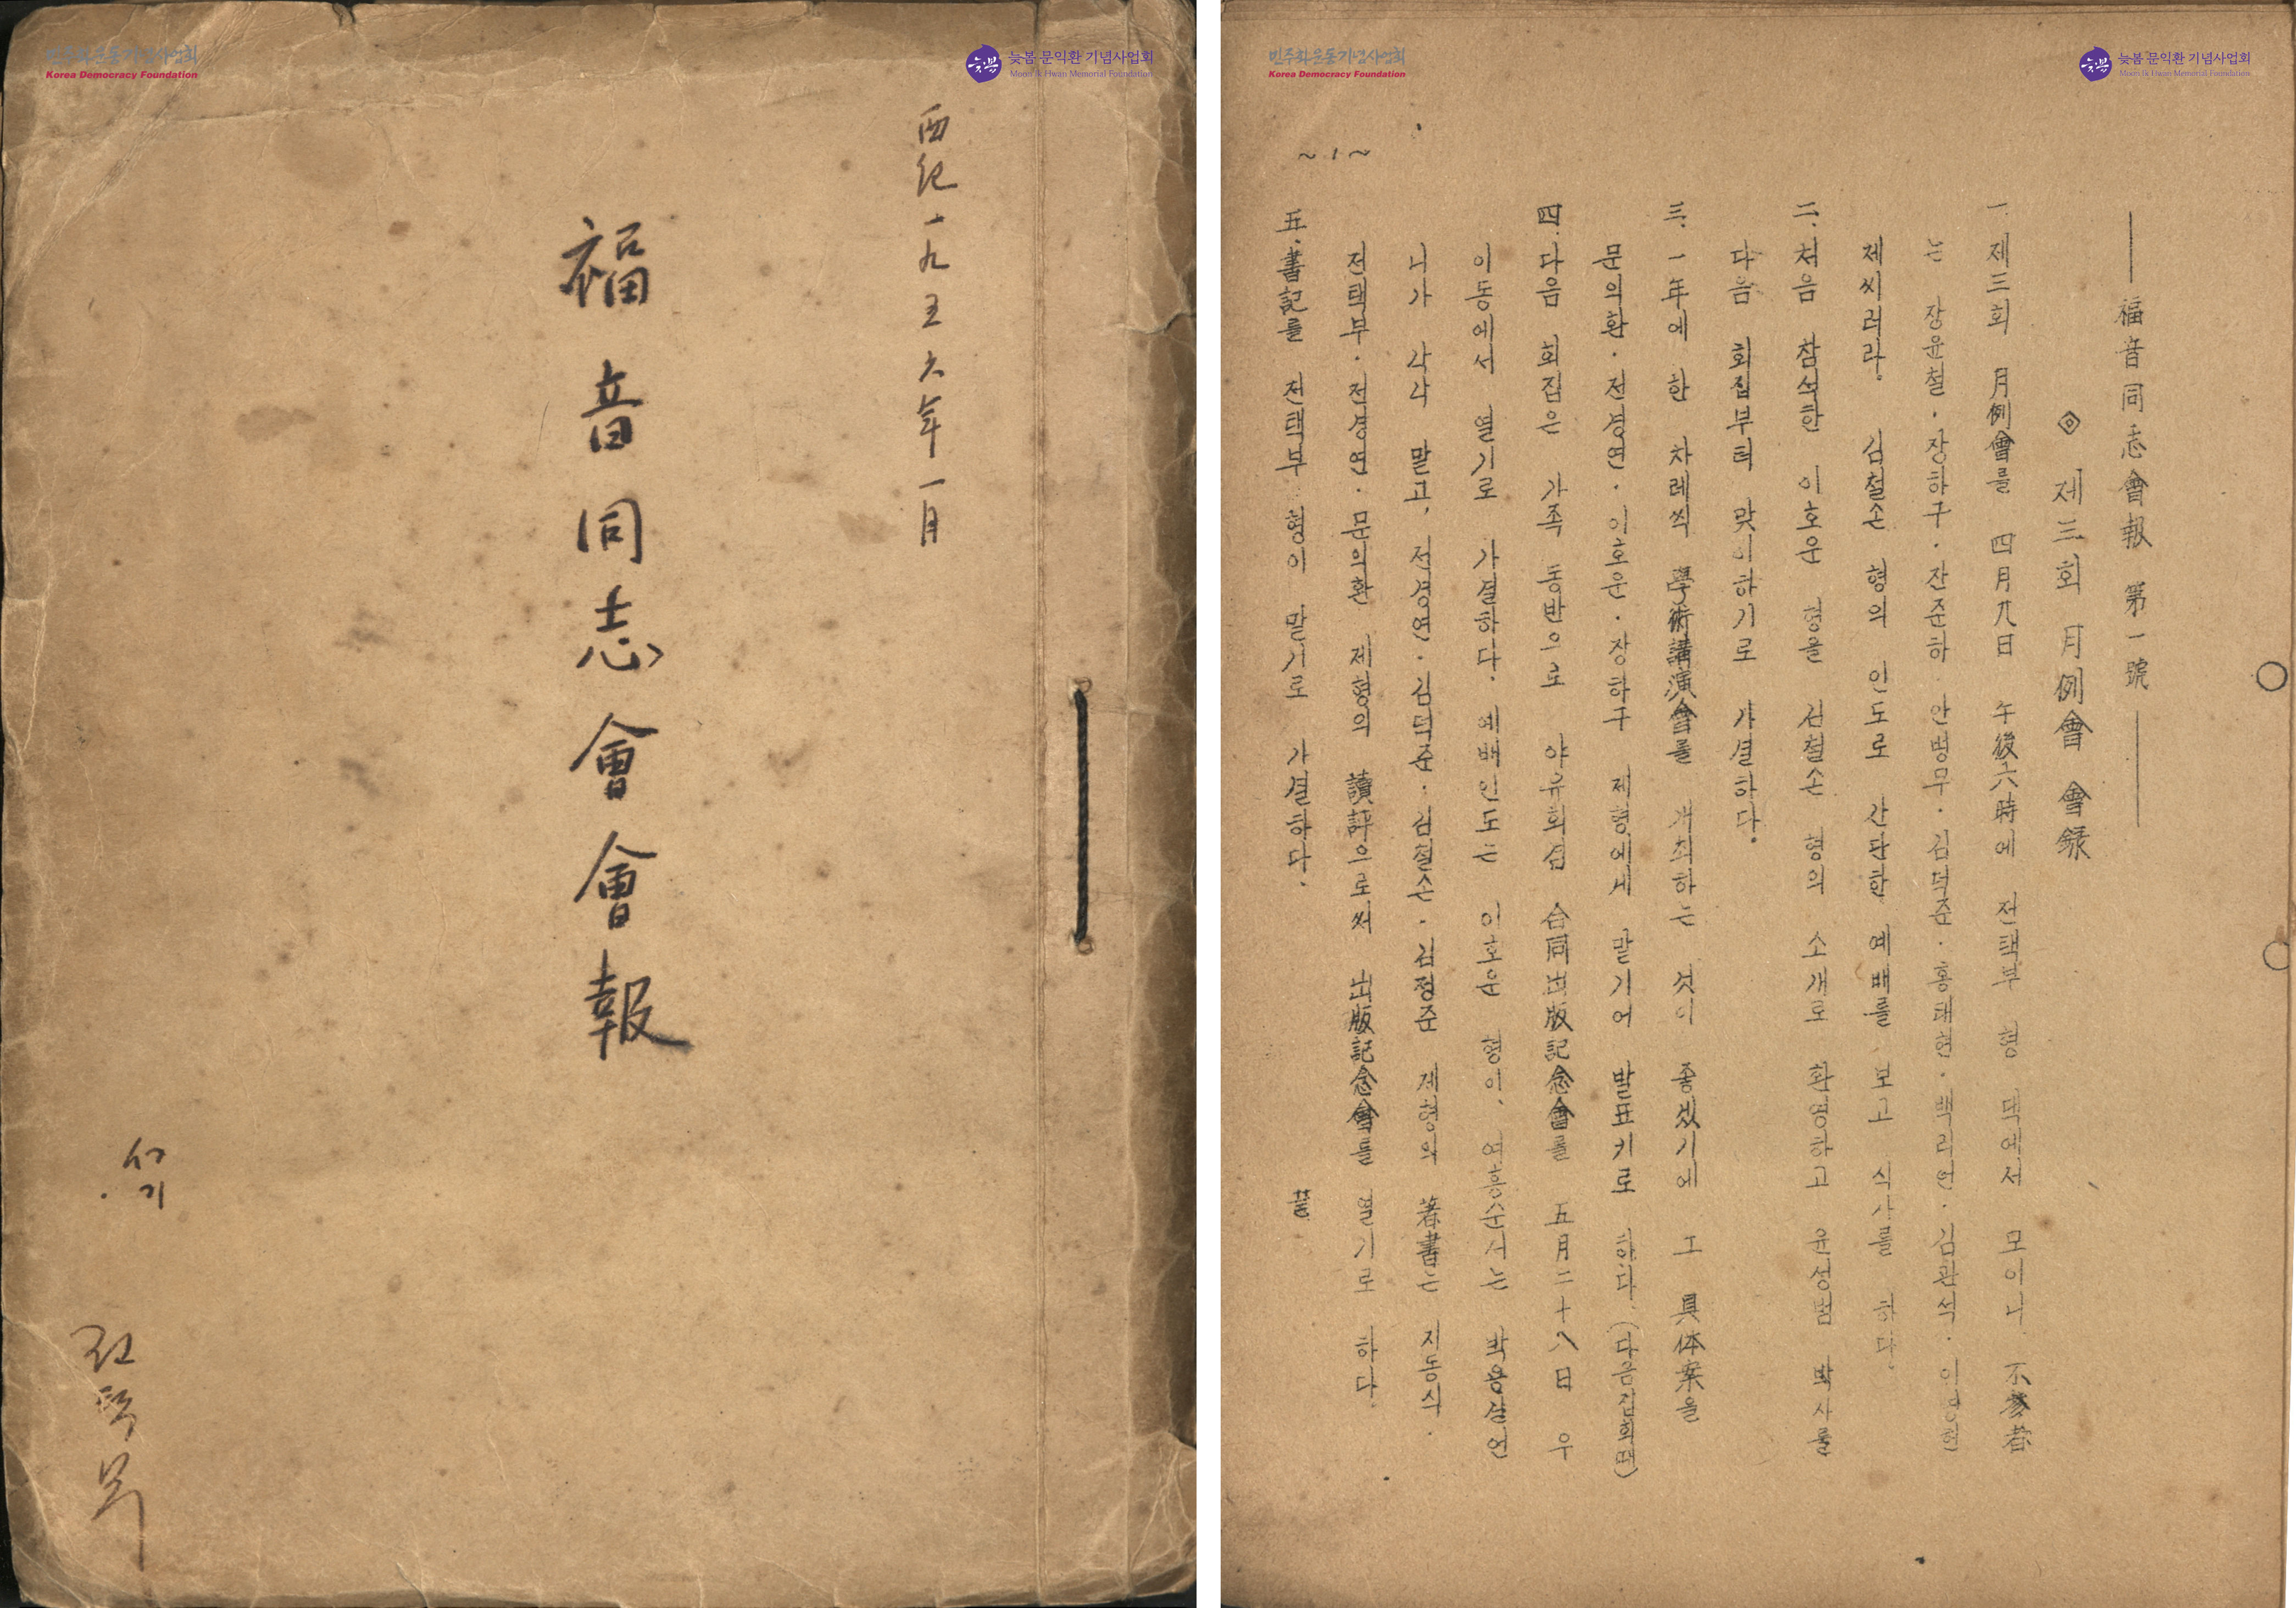 민주화운동기념사업회
Korea Democracy Foundation
늦봄 문익환 기념사업회
Moon Ik Hwan Memorial Foundation
西紀一九五六年一月
福音同志會會報
서기
전택부
민주화운동기념사업회
Korea Democracy Foundation
늦봄 문익환 기념사업회
Moon Ik Hwan Memorial Foundation
~1~
福音同志會報 第一號
제三회 月例會 會録
一. 제三회 月例會를 四月九日 午後六時에 전택부 형 댁에서 모이니 不參者
는 장윤철·장하구·장준하·안병무·김덕준·홍태현·백리언·김관석·이영헌
제씨러라. 김철손 형의 인도로 간단한 예배를 보고 식사를 하다.
二. 처음 참석한 이호운 형을 김철손 형의 소개로 환영하고 윤성범 박사를
다음 회집부터 맞이하기로 가결하다.
三. 一年에 한 차례씩 學術講演會를 개최하는 것이 좋겠기에 그 具体案을
문익환·전경연·이호운·장하구 제형에게 맡기어 발표키로 하다. (다음집회때)
四. 다음 회집은 가족 동반으로 야유회겸 合同出版記念會를 五月二十八日 우
이동에서 열기로 가결하다. 예배인도는 이호운 형이, 여흥순서는 박용길언
니가 각각 맡고, 전경연·김덕준·김철손·김정준 제형의 著書는 지동식·
전택부·전경연·문익환 제형의 讀評으로써 出版記念會를 열기로 하다.
五. 書記를 전택부 형이 맡기로 가결하다. 끝